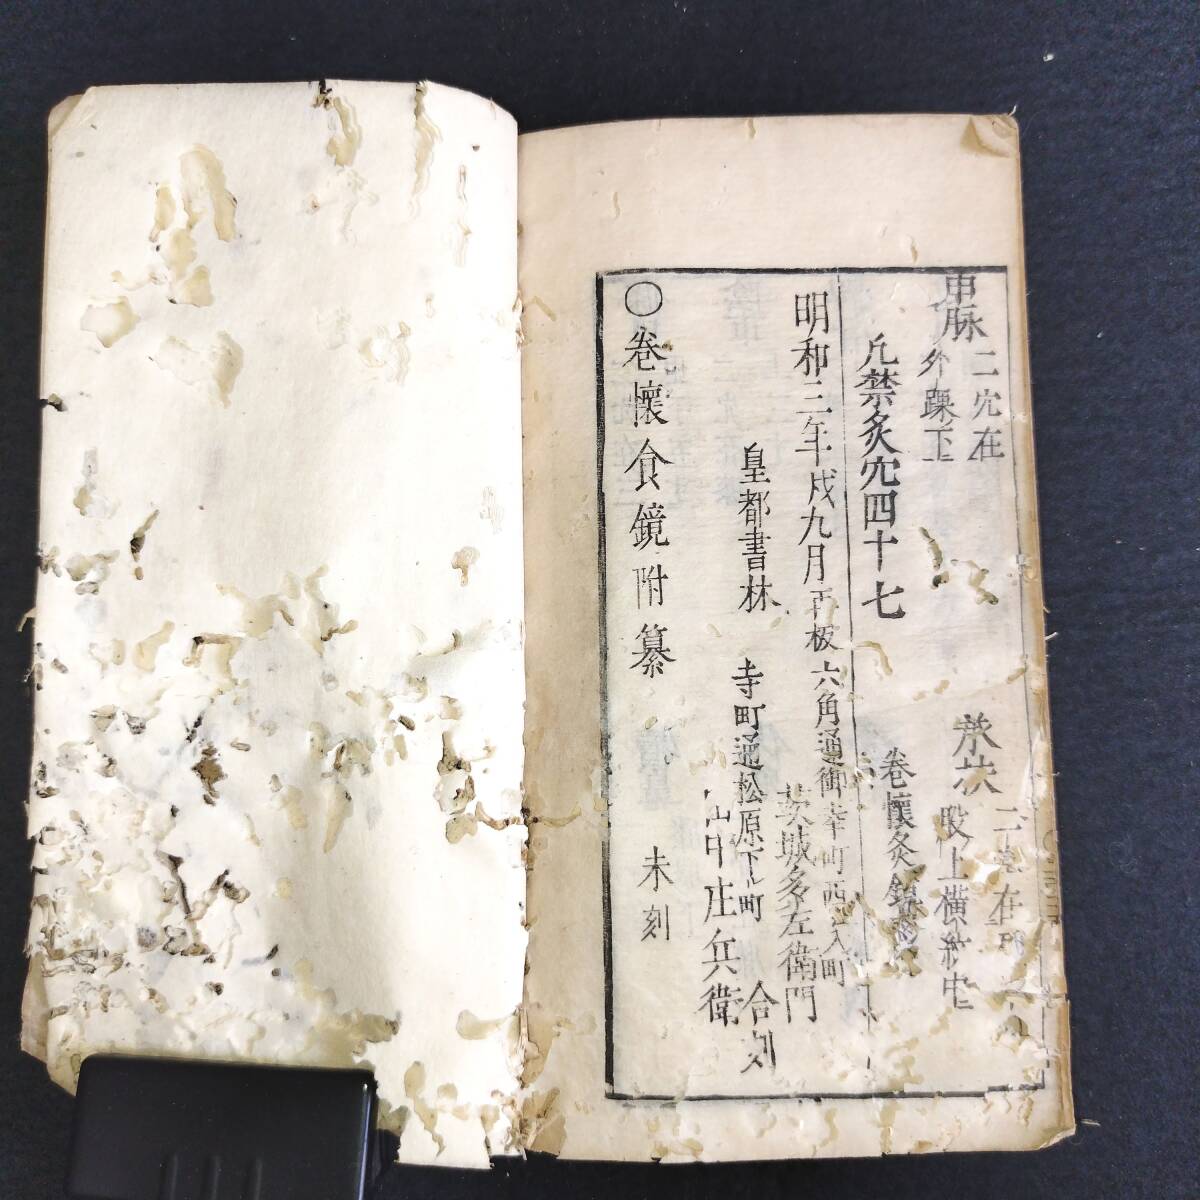 申脉 二穴在外踝下
承扶 二穴在 股上横紋中
凢禁灸穴四十七
卷懷灸鏡
明和三年戌九月再板
六角通御幸町西江入町
茨城多左衛門
皇都書林
寺町通松原下ル町
山中庄兵衛
合刻
○卷懷食鏡附纂 未刻